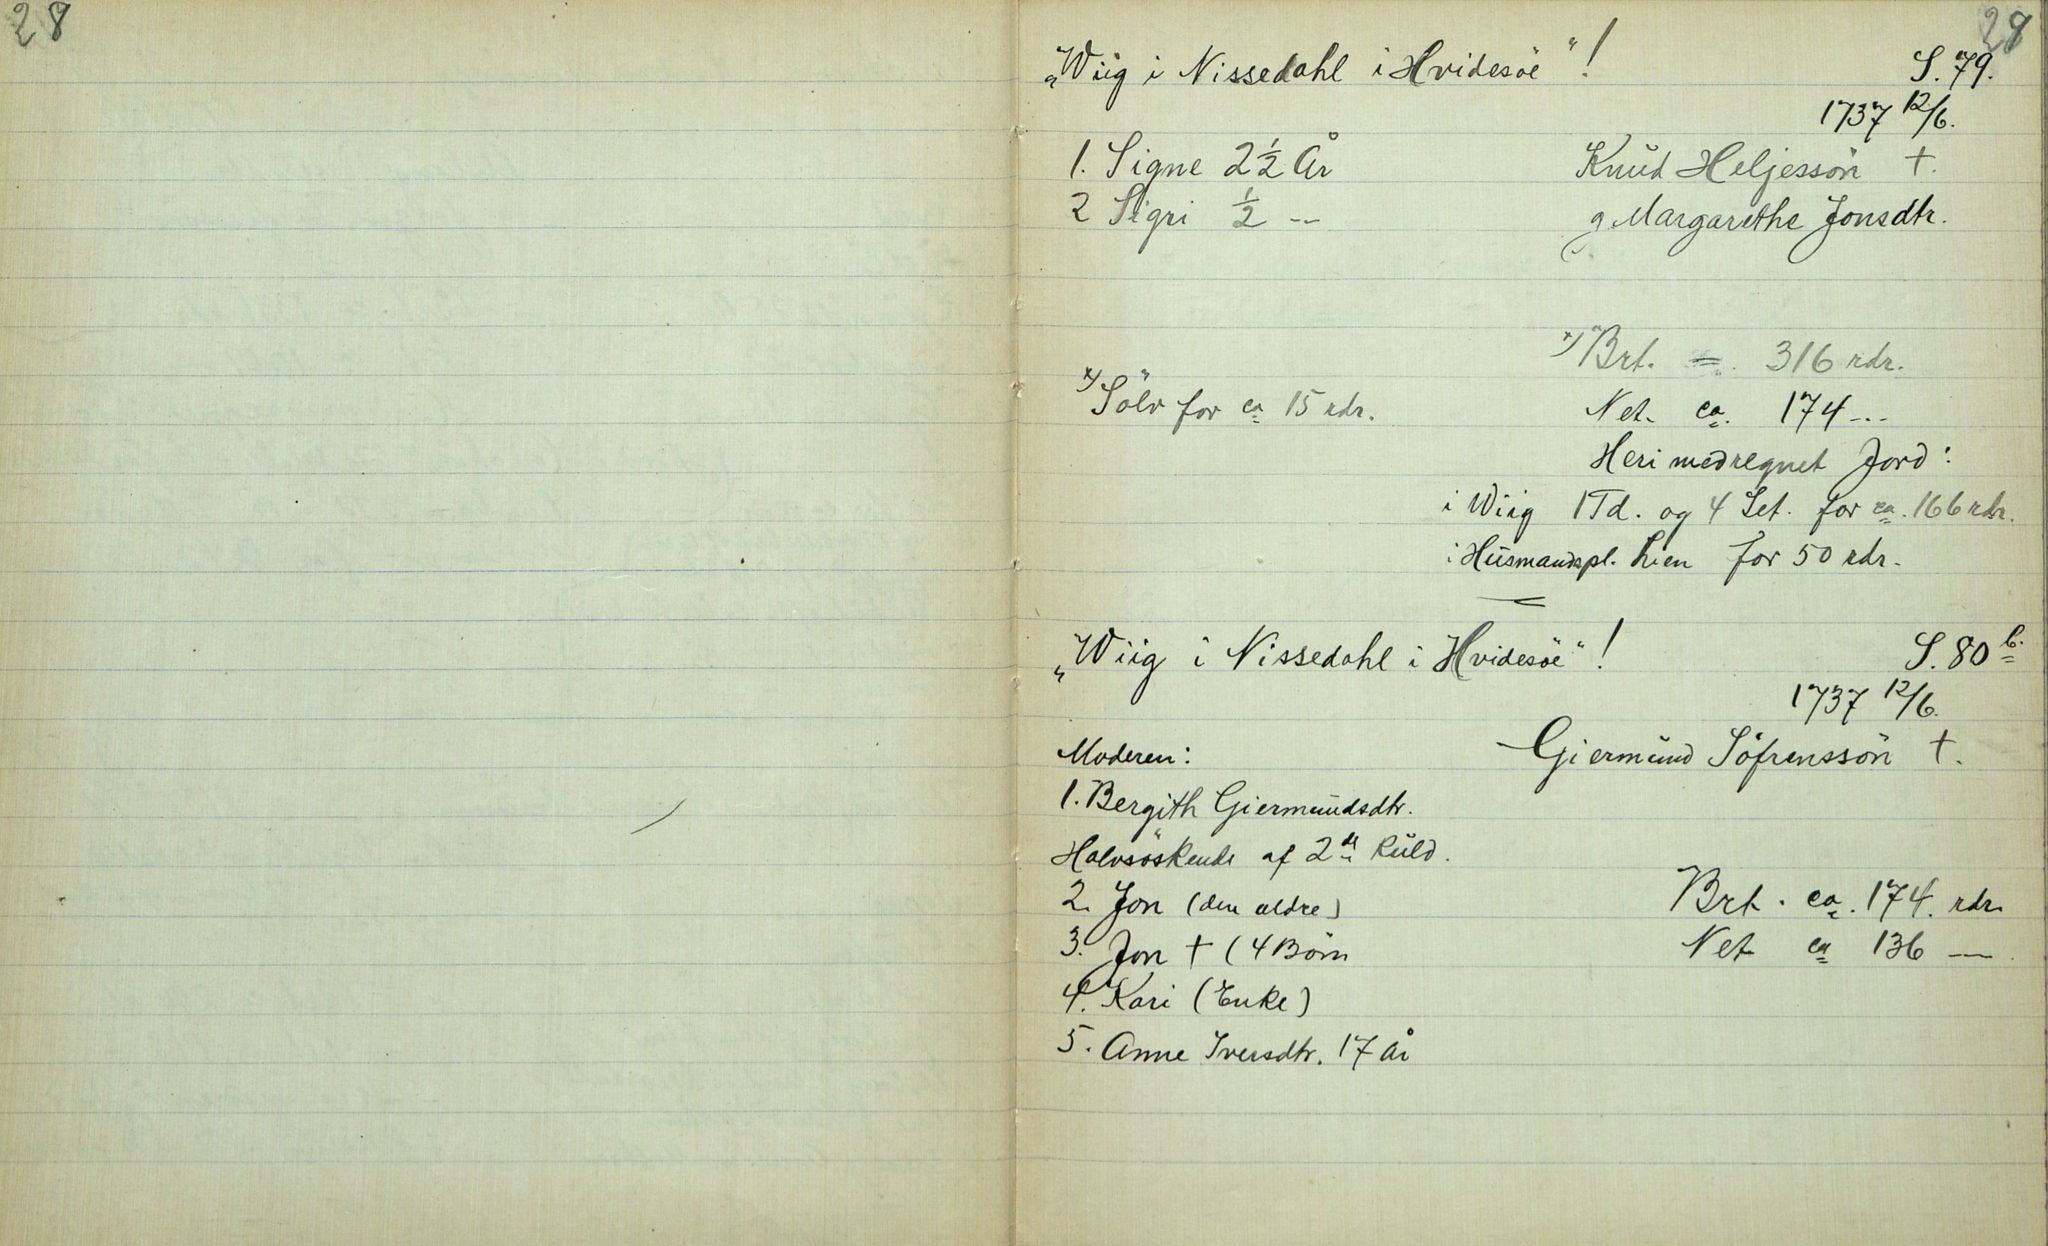 28
28
„Wiig i Nissedahl i Hvidesöe"!
S. 79.
1737 12/6.
1. Signe 2 1/2 År
Knud Heljessön †.
2 Sigri 1/2 --
g Margarethe Jonsdtr.
x) Brt. = 316 rdr.
x) Sölv for ca 15 rdr.
Net. ca. 174 --
Heri medregnet Jord:
i Wiig 1 Td. og 4 Set. for ca. 166 rdr.
i Husmandspl. Lien for 50 rdr.
„Wiig i Nissedahl i Hvidesöe"!
S. 80 b.
1737 12/6.
Moderen:
Giermund Söfrenssön †.
1. Bergith Giermundsdtr.
Halvsöskende af 2de Kuld.
2. Jon (den ældre)
Brt. ca. 174. rdr.
3. Jon † (4 Börn
Net ca 136 —
4. Kari (Enke)
5. Anne Iversdtr. 17 År